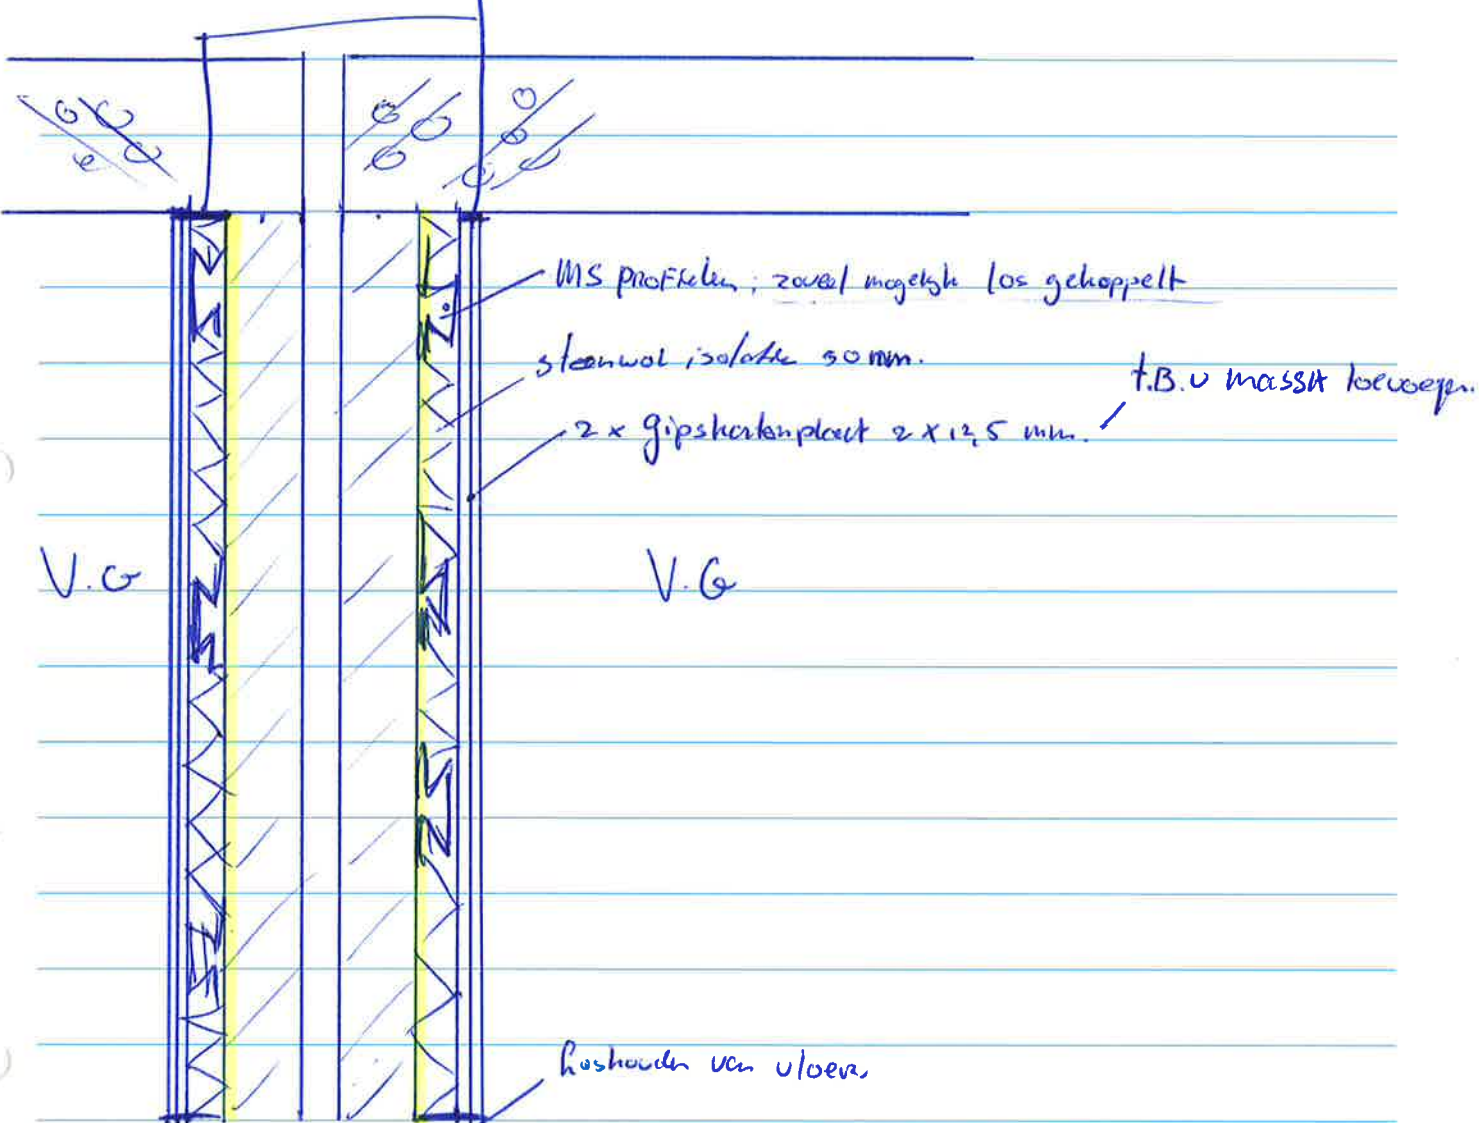 MS profielen; zoveel mogelijk los gekoppelt
steenwol isolatie 50 mm.
t.B.v massa toevoegen.
2 x gipskartonplaat 2 x 12,5 mm.
V.G
V.G
Loshouden van vloer.